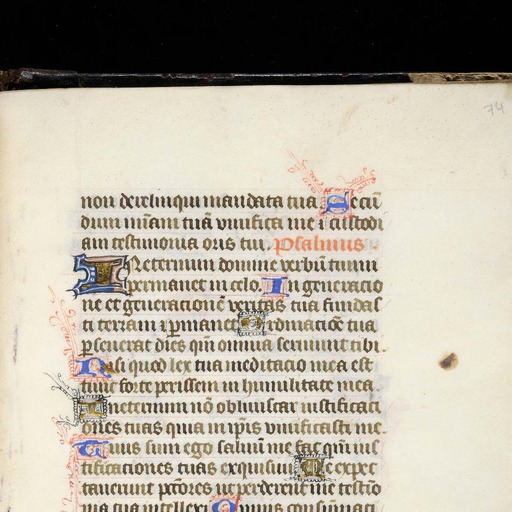 74
non dereliqui mandata tua Secū
dum mīam tuā vivifica me ī custodi
am testimonia oris tui. Psalmus.
IN eternum domine verbū tuum
permanet in celo. In generacio
ne et generacionē veritas tua fundas
ti terram ī ꝑmanet Ordinacōe tua
ꝑseverat dies qm̄ omnia serviunt tibi.
Nisi quod lex tua meditacio mea est
tunc forte perissem in humilitate mea.
In eternum nō obliviscar iustificaci
ones tuas quia in ip̄is vivificasti me.
Tuus sum ego salvū me fac qm̄ ius
tificaciones tuas exquisivi Me expec
taverunt pctōres ut perderent me testīo
nia tua intellexi Omnis consumaci